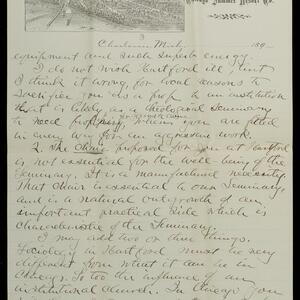 Chicago Summer Resort Co.
3
Charlevoix Mich, 189
equipment and such superb energy.
I do not wish Hartford ill, but
I think it wrong, for local reasons to
sacrifice you as a prop to an institution
that is likely, as a theological Seminary
to need propping, when you are fitted
in every way for an aggressive work.
2. The Chair proposed for you at Hartford
is not essential for the well-being of the
Seminary. It is a manufactured necessity.
That Chair is essential to our Seminary,
and is a natural outgrowth of an
important practical side which is
characteristic of the Seminary.
I may add two or three things.
Sociology in Hartford must be very
different from what it can be in
Chicago. So too the influence of an
institutional church. In Chicago you